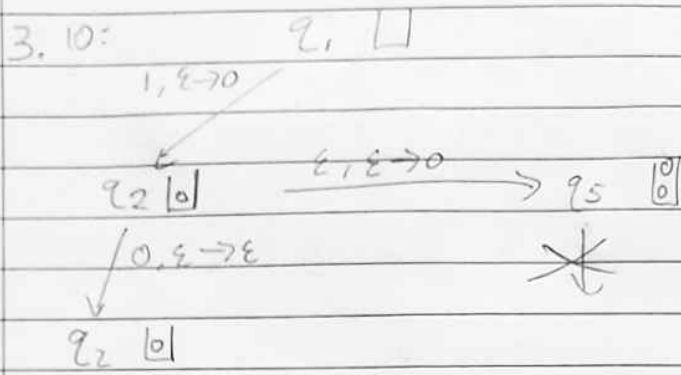 3. 10: q₁
1, ε→0
q₂ 0 ε, ε→0 q₅ 0
0
0, ε→ε
q₂ 0